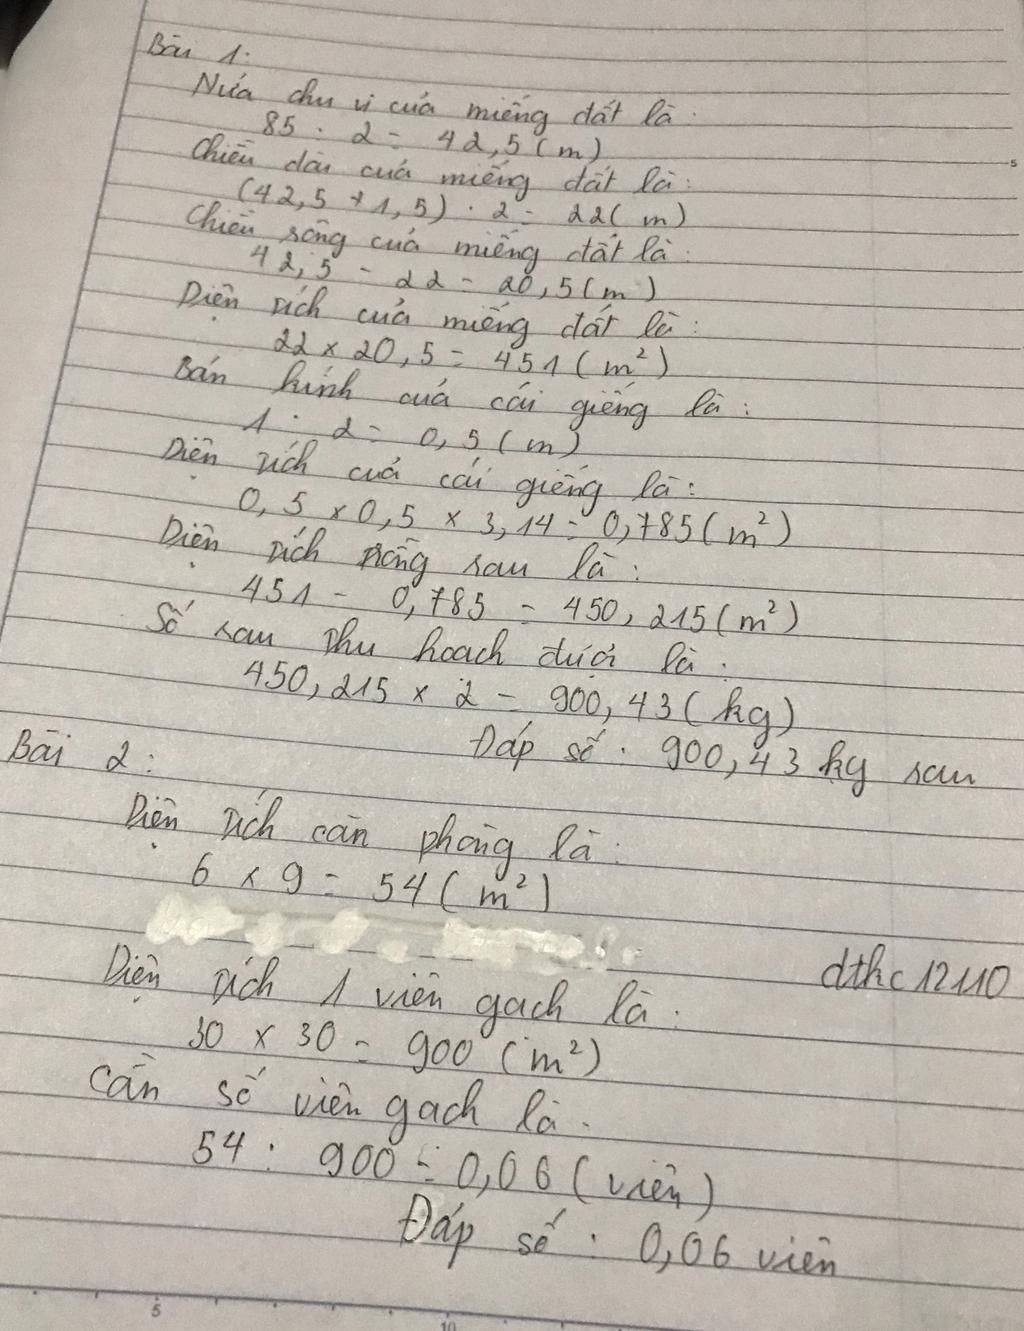 Bài 1:
Nửa chu vi của miếng đất là:
85 : 2 = 42,5 (m)
Chiều dài của miếng đất là:
(42,5 + 1,5) : 2 = 22 (m)
Chiều rộng của miếng đất là:
42,5 - 22 = 20,5 (m)
Diện tích của miếng đất là:
22 x 20,5 = 451 (m²)
Bán kính của cái giếng là:
1 : 2 = 0,5 (m)
Diện tích của cái giếng là:
0,5 x 0,5 x 3,14 = 0,785 (m²)
Diện tích trồng rau là:
451 - 0,785 = 450,215 (m²)
Số rau thu hoạch được là:
450,215 x 2 = 900,43 (kg)
Đáp số: 900,43 kg rau
Bài 2:
Diện tích căn phòng là:
6 x 9 = 54 (m²)
dthc12110
Diện tích 1 viên gạch là:
30 x 30 = 900 (m²)
Cần số viên gạch là:
54 : 900 = 0,06 (viên)
Đáp số: 0,06 viên
5
10
5